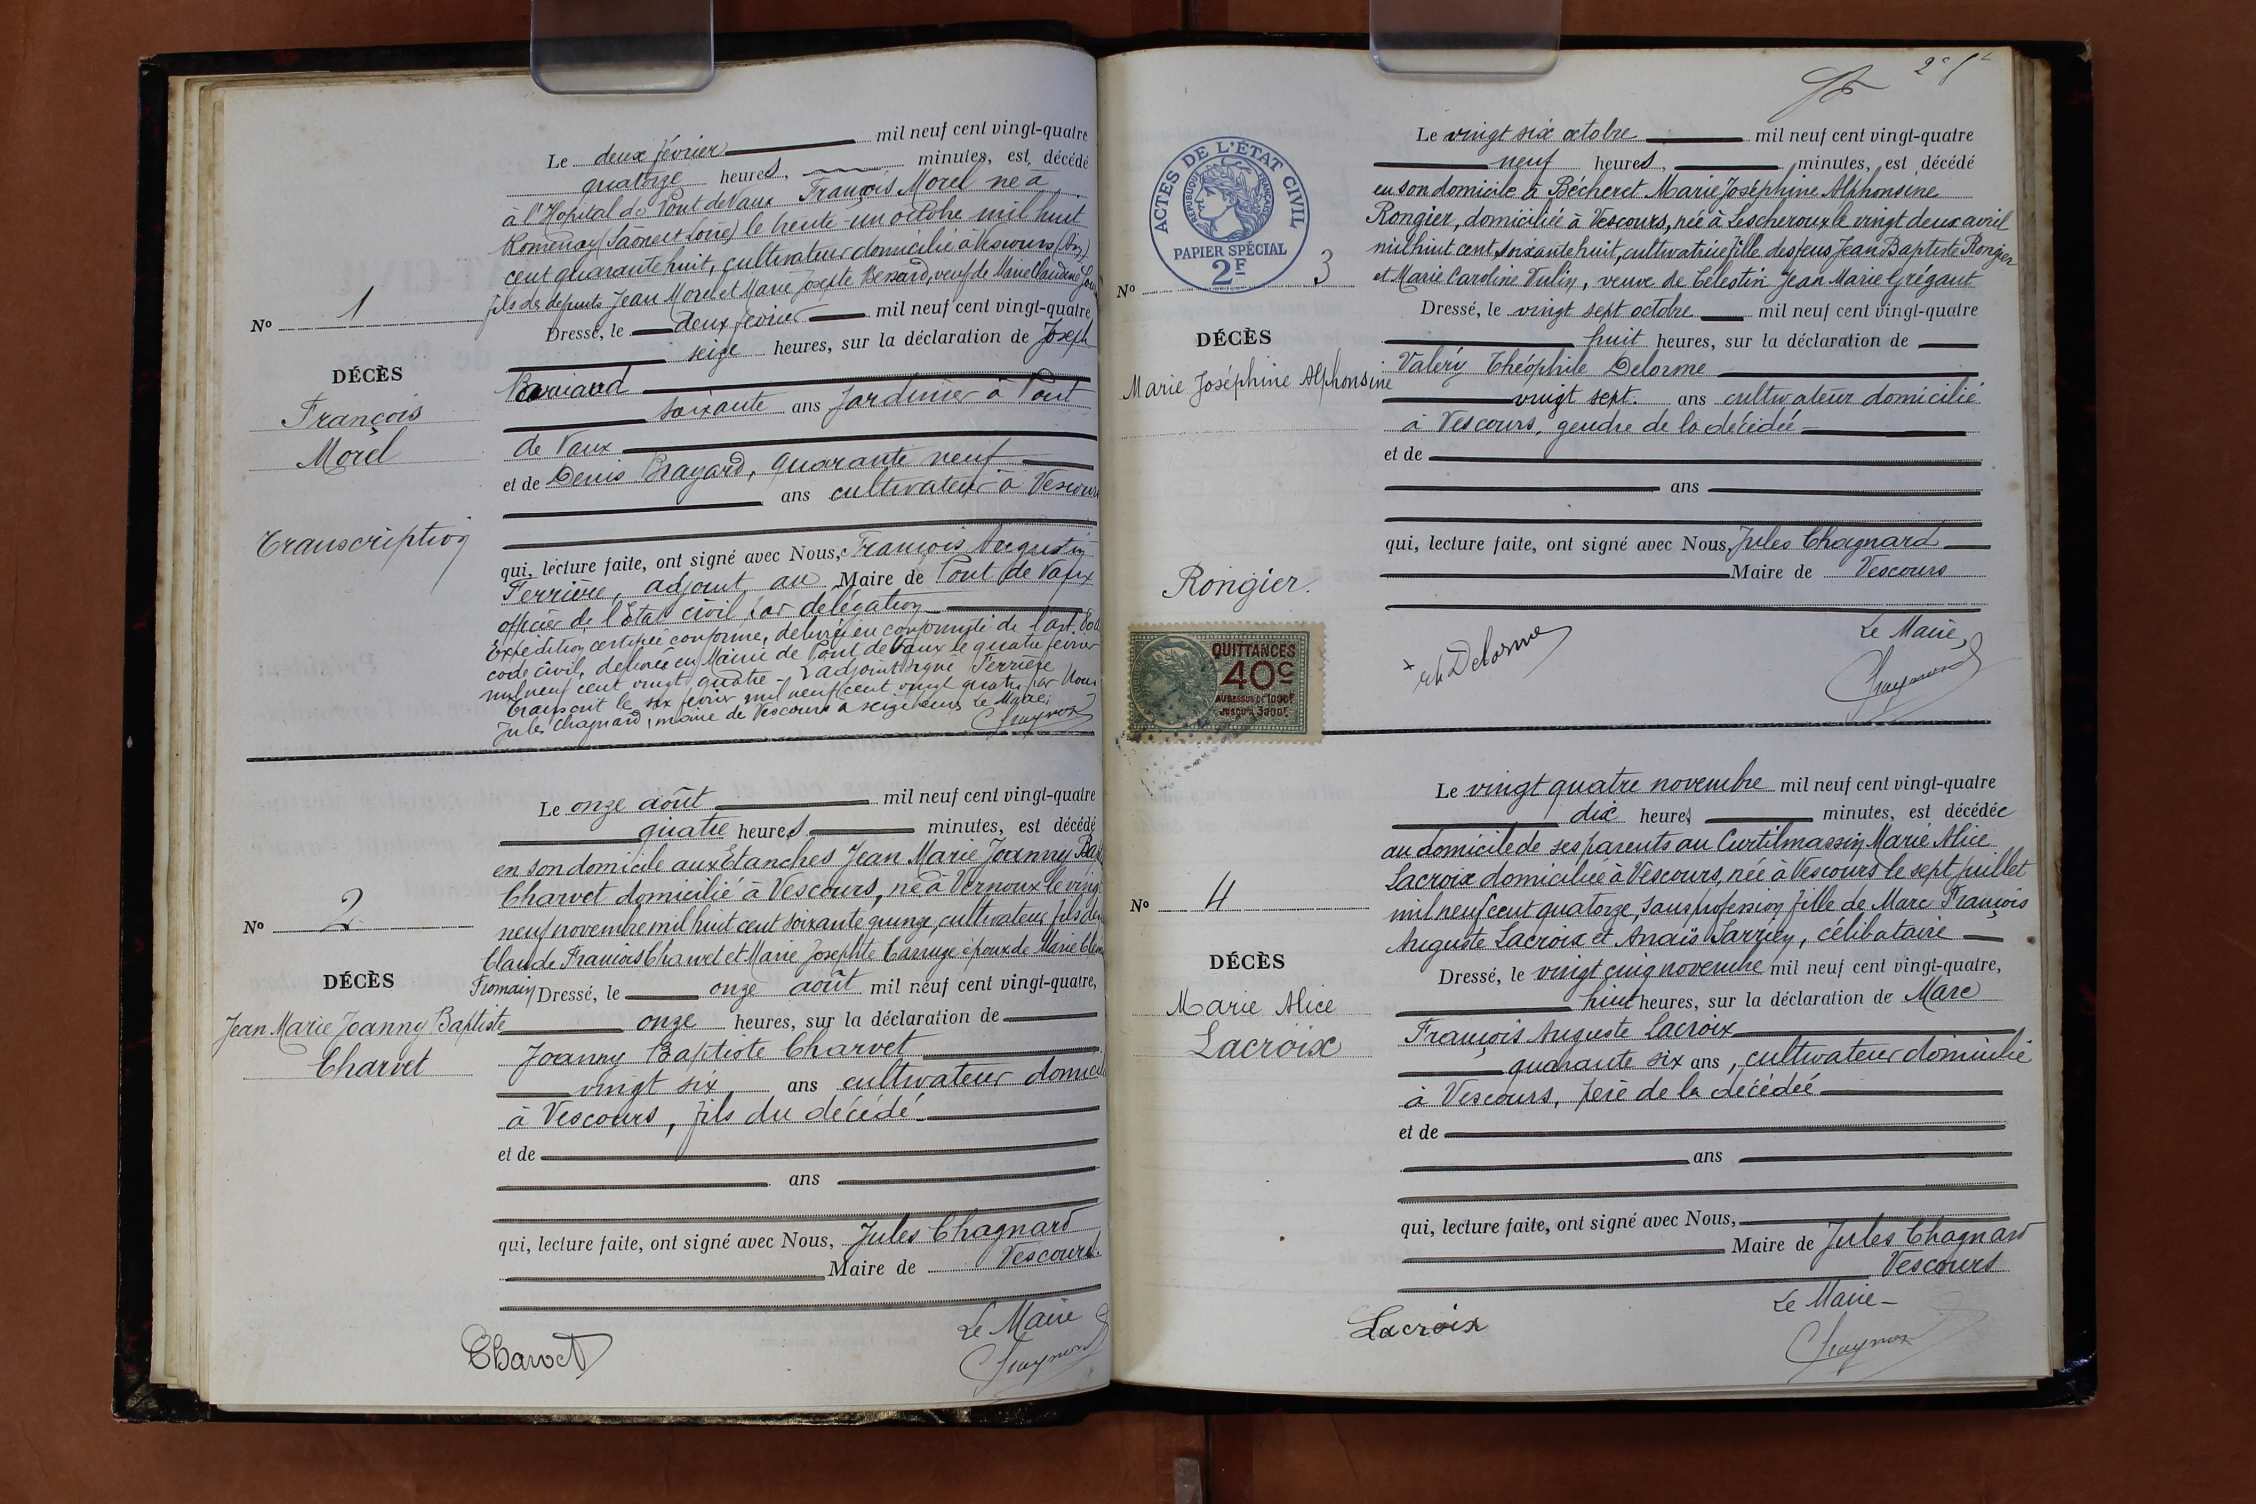 Le deux février mil neuf cent vingt-quatre
quatorze heures, minutes, est décédé
à l'Hopital de Pont de Vaux François Morel né à
Romenay (Saône et Loire) le trente-un octobre mil huit
cent quarante huit, cultivateur domicilié à Vescours (Ain)
fils des défunts Jean Morel et Marie Josephte veuf de Marie Claudine
Nº 1
Dressé, le deux février mil neuf cent vingt-quatre
seize heures, sur la déclaration de Joseph
DÉCÈS
François
Morel
Transcription
soixante ans Jardinier à Pont
de Vaux
et de Denis Brayard, quarante neuf
ans cultivateur à Vescours
qui, lecture faite, ont signé avec Nous, François Augustin
Ferrière, adjoint au Maire de Pont de Vaux
officier de l'Etat civil par délégation
Expédition certifiée conforme, délivrée en conformité de l'art.
code civil, délivrée en Mairie de Pont de Vaux le quatre février
mil neuf cent vingt quatre - L'adjoint signé Ferrière
Transcrit le six février mil neuf cent vingt quatre par Nous
Jules Chagnard, maire de Vescours à seize heures Le Maire,
Chagnard
Le onze août mil neuf cent vingt-quatre
quatre heures minutes, est décédé
en son domicile aux Etanches Jean Marie Joanny
Charvet domicilié à Vescours, né à Vernoux le vingt
neuf novembre mil huit cent soixante quinze, cultivateur, fils de
Claude François Charvet et Marie Josephte Carruge époux de Marie
Nº 2
DÉCÈS
Jean Marie Joanny Baptiste
Charvet
Fromain Dressé, le onze août mil neuf cent vingt-quatre,
onze heures, sur la déclaration de
Joanny Baptiste Charvet
vingt six ans cultivateur
à Vescours, fils du décédé
et de
ans
qui, lecture faite, ont signé avec Nous, Jules Chagnard
Maire de Vescours
Le Maire
Charvet
Chagnard
2
ACTES DE L'ÉTAT CIVIL
RÉPUBLIQUE FRANÇAISE
PAPIER SPÉCIAL
2F
Le vingt six octobre mil neuf cent vingt-quatre
neuf heures, minutes, est décédé
en son domicile à Bécheret Marie Joséphine Alphonsine
Rongier, domiciliée à Vescours, née à Lescheroux le vingt deux avril
mil huit cent soixante huit, cultivatrice, fille des feus Jean Baptiste Rongier
et Marie Caroline Vulin, veuve de Célestin Jean Marie Grégaut
Nº 3
DÉCÈS
Marie Joséphine Alphonsine
Rongier.
Dressé, le vingt sept octobre mil neuf cent vingt-quatre
huit heures, sur la déclaration de
Valéry Théophile Delorme
vingt sept. ans cultivateur domicilié
à Vescours, gendre de la décédée
et de
ans
qui, lecture faite, ont signé avec Nous, Jules Chagnard
Maire de Vescours
Le Maire,
Delorme
Chagnard
QUITTANCES
40c
AU DESSUS DE 1000F
JUSQU'À 3000F
Le vingt quatre novembre mil neuf cent vingt-quatre
dix heures minutes, est décédée
au domicile de ses parents au Curtilmassin Marie Alice
Lacroix domiciliée à Vescours, née à Vescours le sept juillet
mil neuf cent quatorze, sans profession, fille de Marc François
Auguste Lacroix et Anaïs Sarrien, célibataire
Nº 4
DÉCÈS
Marie Alice
Lacroix
Dressé, le vingt cinq novembre mil neuf cent vingt-quatre,
huit heures, sur la déclaration de Marc
François Auguste Lacroix
quarante six ans, cultivateur domicilié
à Vescours, père de la décédée
et de
ans
qui, lecture faite, ont signé avec Nous,
Maire de Jules Chagnard
Vescours
Le Maire
Lacroix
Chagnard